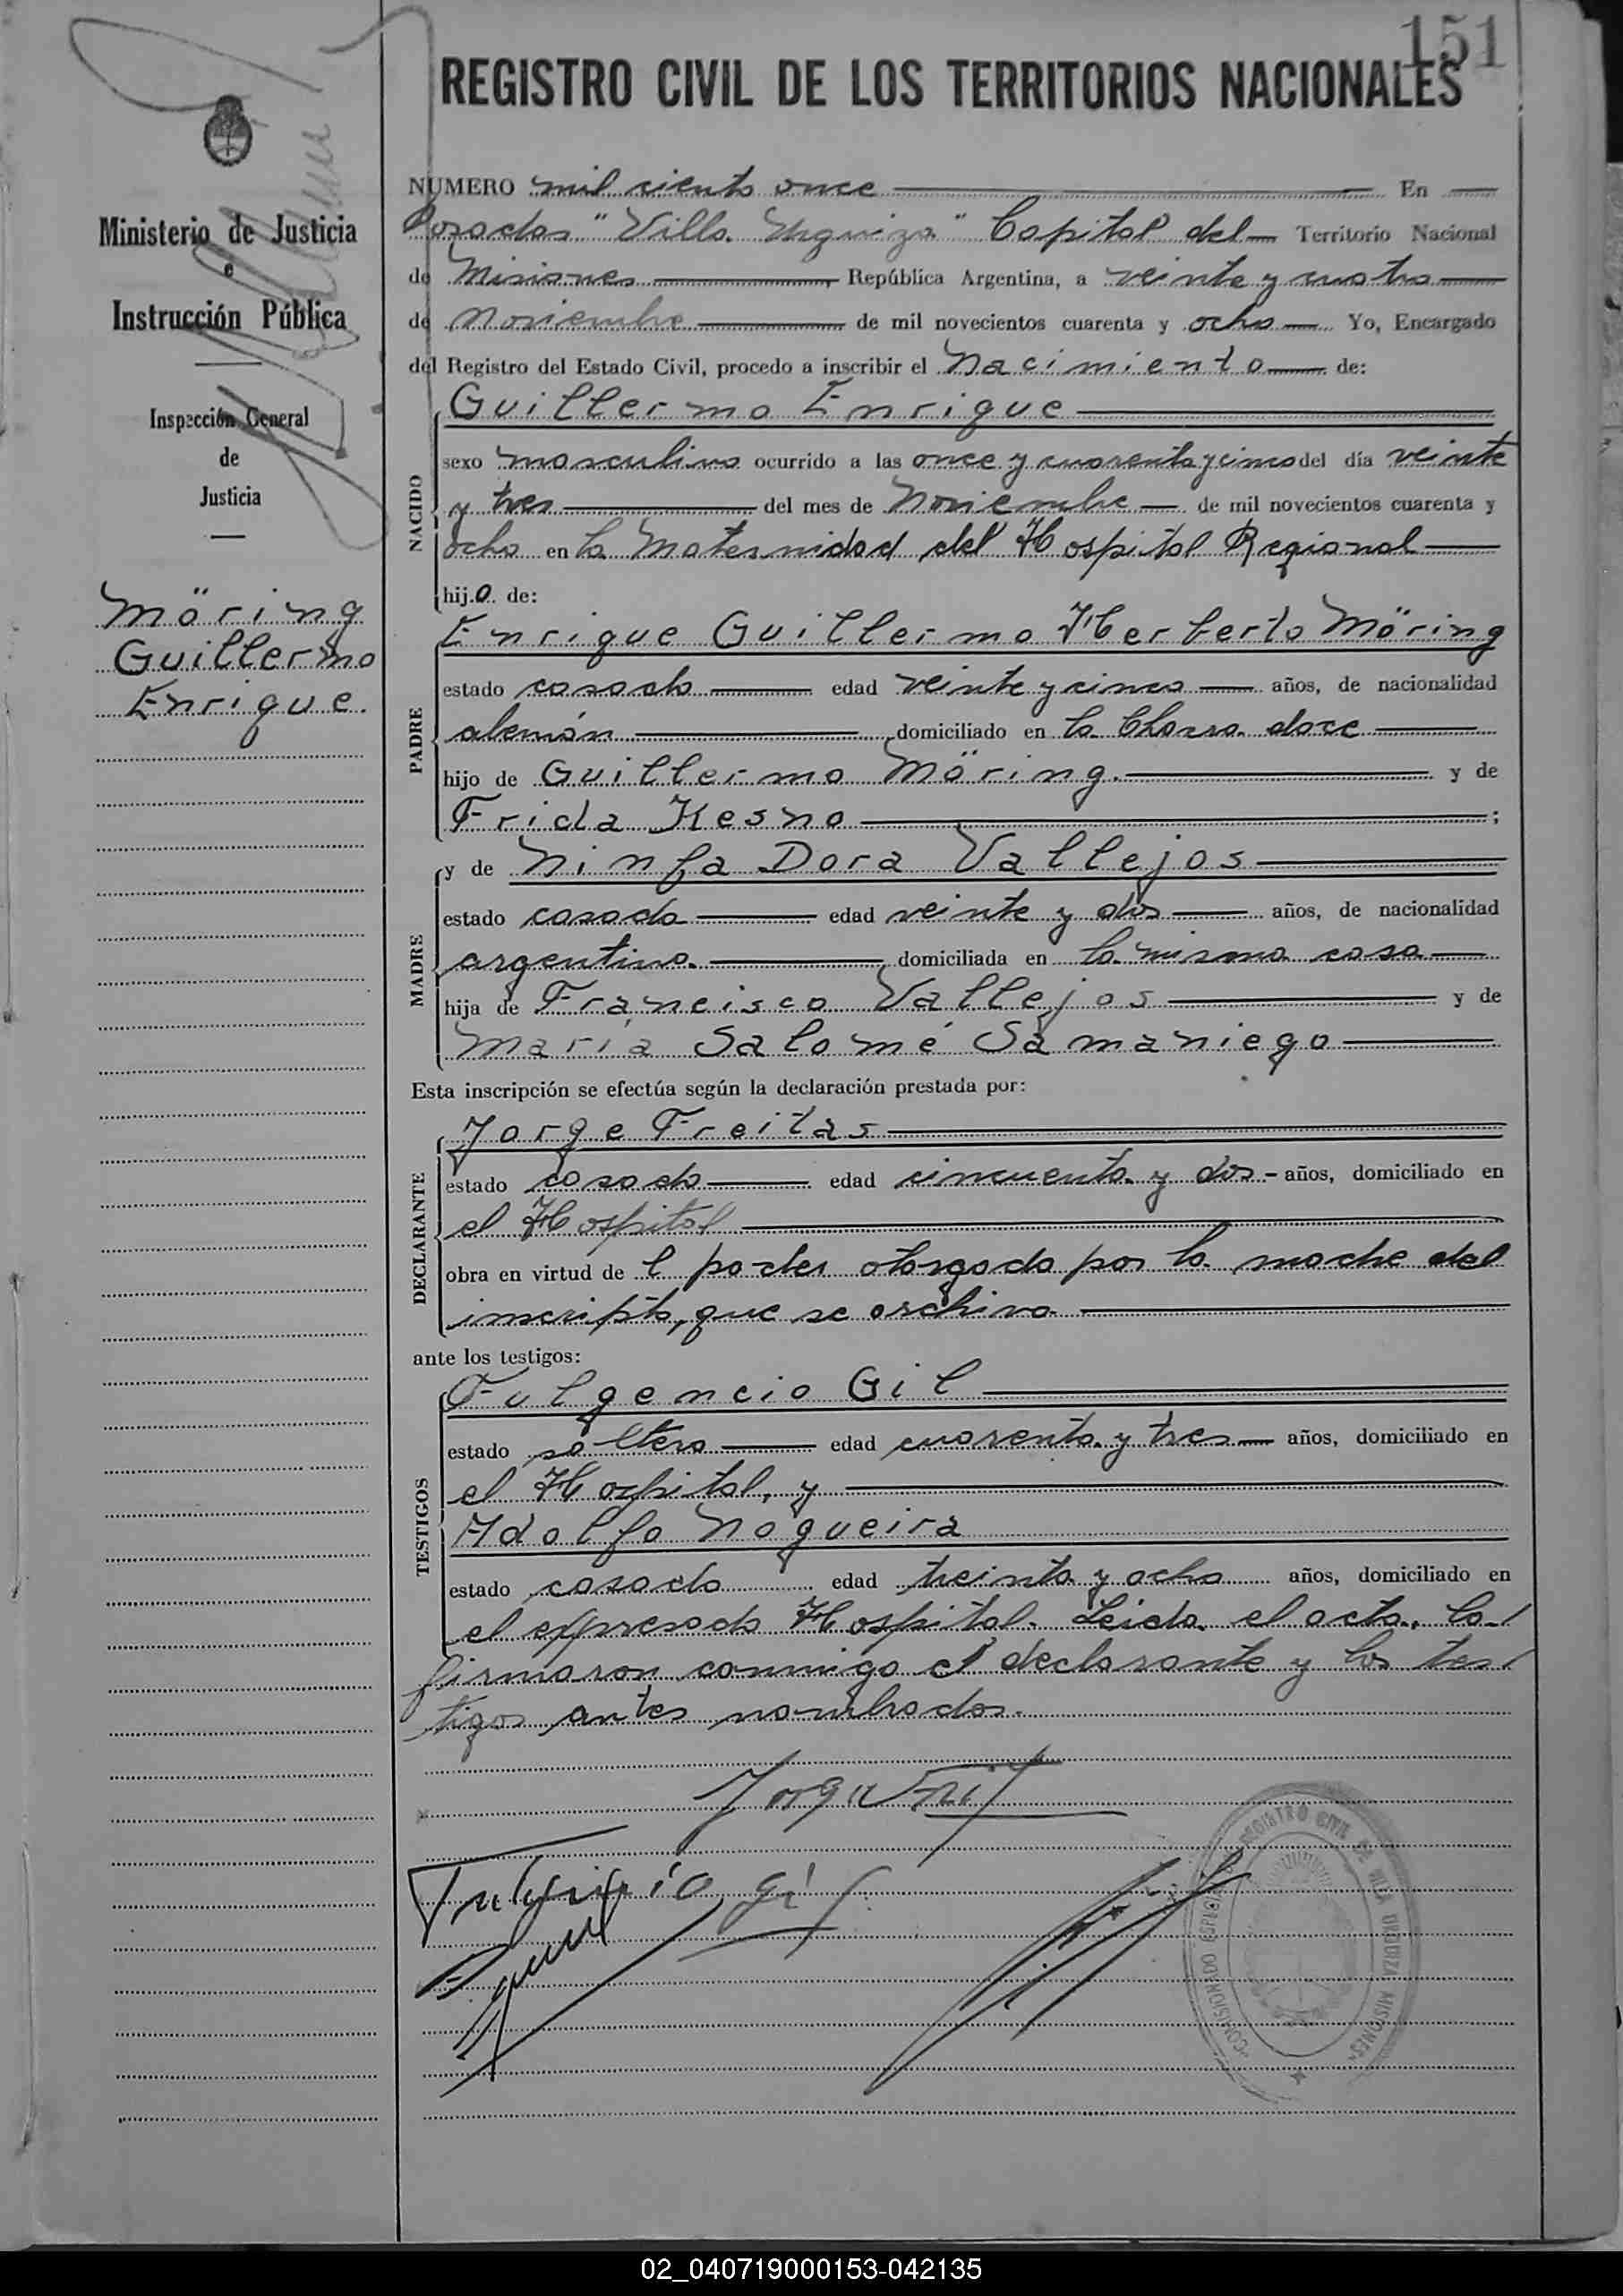 151
REGISTRO CIVIL DE LOS TERRITORIOS NACIONALES
Ministerio de Justicia
e
Instrucción Pública
Inspección General
de
Justicia
Möring
Guillermo
Enrique.
NUMERO mil ciento once En
Posadas "Villa Urquiza" Capital del Territorio Nacional
de Misiones República Argentina, a veinte y cuatro
de Noviembre de mil novecientos cuarenta y ocho Yo, Encargado
del Registro del Estado Civil, procedo a inscribir el Nacimiento de:
NACIDO
Guillermo Enrique
sexo masculino ocurrido a las once y cuarenta y cinco del día veinte
y tres del mes de Noviembre de mil novecientos cuarenta y
ocho en la Maternidad del Hospital Regional
hijo de:
PADRE
Enrique Guillermo Herberto Möring
estado casado edad veinte y cinco años, de nacionalidad
alemán domiciliado en la Chacra doce
hijo de Guillermo Möring. y de
Frida Kesno ;
MADRE
y de Ninfa Dora Vallejos
estado casada edad veinte y dos años, de nacionalidad
argentina. domiciliada en la misma casa
hija de Francisco Vallejos y de
María Salomé Samaniego
Esta inscripción se efectúa según la declaración prestada por:
DECLARANTE
Jorge Freitas
estado casado edad cincuenta y dos - años, domiciliado en
el Hospital
obra en virtud de l poder otorgado por la madre del
inscripto, que se archiva
ante los testigos:
TESTIGOS
Fulgencio Gil
estado soltero edad cuarenta y tres años, domiciliado en
el Hospital, y
Adolfo Nogueira
estado casado edad treinta y ocho años, domiciliado en
el expresado Hospital. Leida el acta, la
firmaron conmigo el declarante y los tes/
tigos antes nombrados.
Fulgencio Gil
COMISIONADO ESPECIAL REGISTRO CIVIL DE VILLA URQUIZA MISIONES
02_040719000153-042135